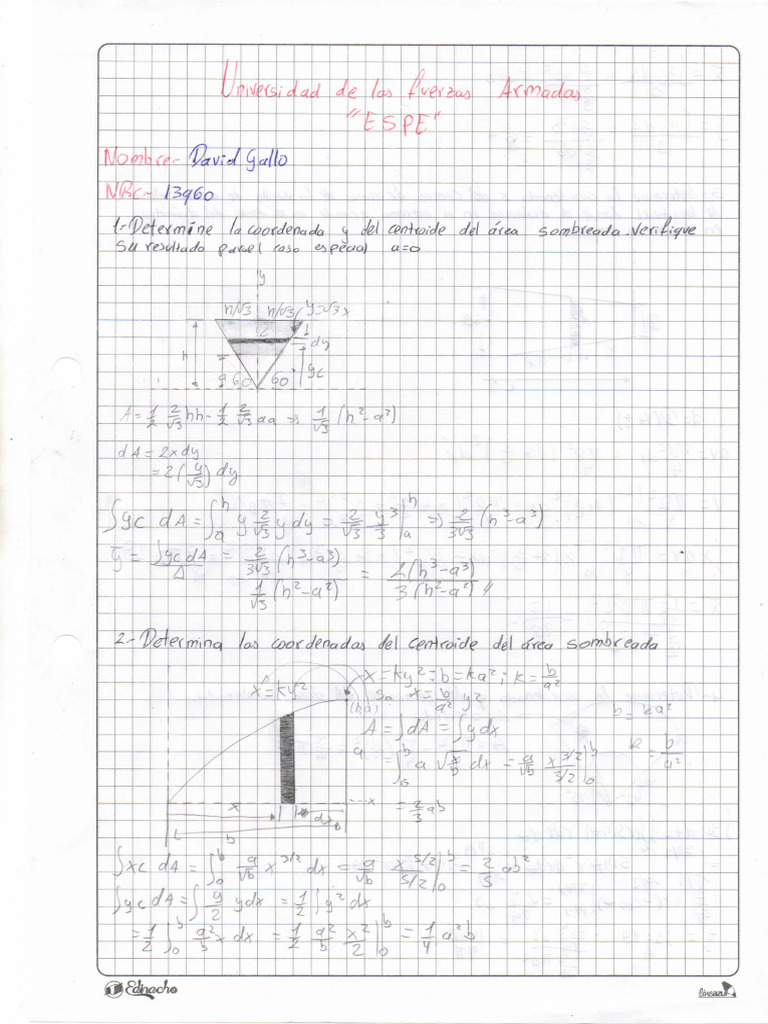 Universidad de las fuerzas Armadas
"ESPE"
Nombre- David Gallo
NRC- 13960
1.-Determine la coordenada y del centroide del área sombreada. Verifique
su resultado para el caso especial a=0
y
h/√3 h/√3 y=√3x
dy
h
yc
60 60
A = 1/2 2/√3 hh - 1/2 2/√3 aa => 1/√3 (h² - a²)
dA = 2x dy
= 2(y/√3) dy
∫yc dA = ∫ₐʰ y 2/√3 y dy = 2/√3 y³/3 |ₐʰ => 2/3√3 (h³ - a³)
ȳ = ∫yc dA / A = 2/3√3 (h³ - a³) / 1/√3 (h² - a²) = 2(h³ - a³) / 3(h² - a²) //
2.- Determina las coordenadas del centroide del área sombreada
x = ky²
x = ky² ; b = ka² ; k = b/a²
So x = b/a² y²
(b,a)
b = ka²
k = b/a²
A = ∫dA = ∫y dx
a
= ∫₀ᵇ a √(x/b) dx = a/√b x^(3/2)/(3/2) |₀ᵇ
= 2/3 ab
x
x
dx
b
∫xc dA = ∫₀ᵇ a/√b x^(3/2) dx = a/√b x^(5/2)/(5/2) |₀ᵇ = 2/5 ab²
∫yc dA = ∫ y/2 y dx = 1/2 ∫y² dx
= 1/2 ∫₀ᵇ a²/b x dx = 1/2 a²/b x²/2 |₀ᵇ = 1/4 a²b
Edinacho
lineazul